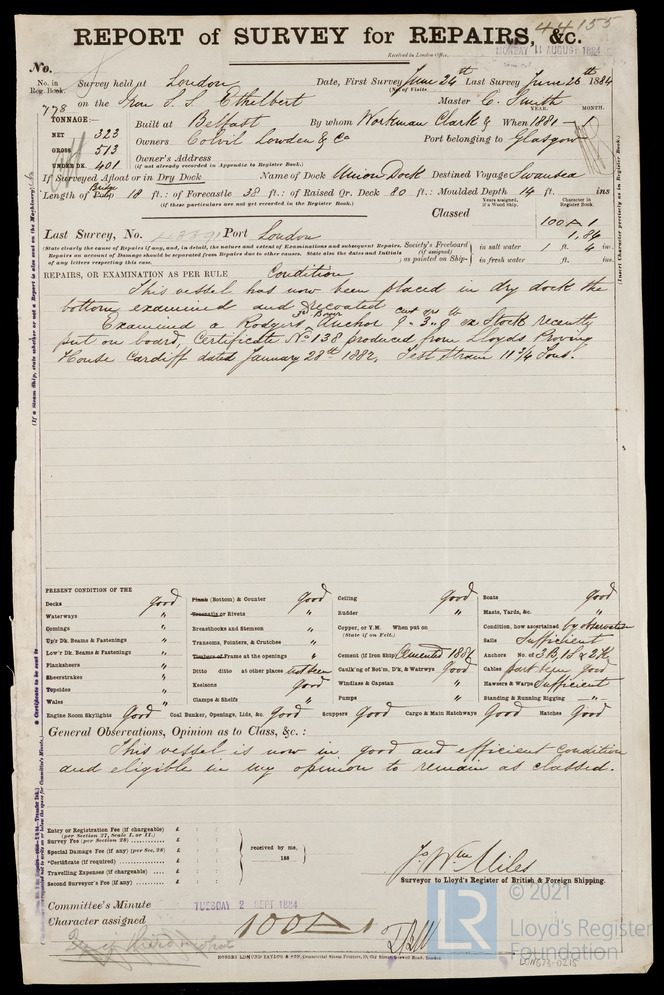 44155
REPORT of SURVEY for REPAIRS, &c.
Received in London Office,
MONDAY 11 AUGUST 1884
No.
No. in Reg. Book. Survey held at London Date, First Survey June 24th Last Survey June 26th 1884
(No. of Visits
778 on the Iron S.S. Ethelbert Master C. Smith
TONNAGE:— YEAR. MONTH.
NET 323 Built at Belfast By whom Workman Clark & When 1881 — 1
GROSS 513 Owners Colvil Lowden & Co Port belonging to Glasgow
UNDER DK. 401 Owner's Address
(if not already recorded in Appendix to Register Book.)
If Surveyed Afloat or in Dry Dock Name of Dock Union Dock Destined Voyage Swansea
Length of Bridge Poop 18 ft.: of Forecastle 38 ft.: of Raised Qr. Deck 80 ft.: Moulded Depth 14 ft. ins
(if these particulars are not yet recorded in the Register Book.) Years assigned, if a Wood Ship. Character in Register Book.
Classed 100A1
1,84
Last Survey, No. Port London
(State clearly the cause of Repairs if any, and, in detail, the nature and extent of Examinations and subsequent Repairs. An account of Damage should be separated from Repairs due to other causes. State also the dates and Initials of any letters respecting this case.
Society's Freeboard (if assigned) as painted on Ship- in salt water 1 ft. 4 ins.
in fresh water ft. ins.
REPAIRS, OR EXAMINATION AS PER RULE Condition
This vessel has now been placed in dry dock the
bottom examined and recoated
3rd Bower cwt qrs lb
Examined a Rodgers Anchor 9-3-9 ex Stock recently
put on board, Certificate No 138 produced from Lloyds Proving
House Cardiff dated January 28th 1882, Test Strain 11 3/4 Tons.
PRESENT CONDITION OF THE
Decks good
Waterways "
Comings "
Up'r Dk. Beams & Fastenings "
Low'r Dk. Beams & Fastenings "
Planksheers "
Sheerstrakes "
Topsides "
Wales "
Plank (Bottom) & Counter good
Treenails or Rivets "
Breasthooks and Stemson "
Transoms, Pointers, & Crutches "
Timbers of Frame at the openings "
Ditto ditto at other places not seen
Keelsons good
Clamps & Shelfs "
Ceiling good
Rudder "
Copper, or Y.M. When put on
(State if on Felt.)
Cement (if Iron Ship) Cemented 1881
Caulk'ng of Bot'm, D'k, & Watrwys Good
Windlass & Capstan "
Pumps "
Boats good
Masts, Yards, &c. "
Condition, how ascertained by observation
Sails Sufficient
Anchors No. of 3B, 1S & 2K
Cables part seen good
Hawsers & Warps Sufficient
Standing & Running Rigging "
Engine Room Skylights Good Coal Bunker, Openings, Lids, &c. Good Scuppers Good Cargo & Main Hatchways Good Hatches Good
General Observations, Opinion as to Class, &c.:
This vessel is now in good and efficient condition
and eligible in my opinion to remain as classed.
Entry or Registration Fee (if chargeable) £ : :
(per Section 27, Scale I. or II.)
Survey Fee (per Section 28) £ : :
Special Damage Fee (if any) (per Sec. 28) £ : :
*Certificate (if required) £ : :
Travelling Expenses (if chargeable) £ : :
Second Surveyor's Fee (if any) £ : :
received by me,
188
Jo Wm Miles
Surveyor to Lloyd's Register of British & Foreign Shipping.
Committee's Minute TUESDAY 2 SEPT 1884
Character assigned 100A1
ROBERT EDMUND TAYLOR & SON, Commercial Steam Printers, 19, Old Street, Goswell Road, London.
© 2021
LR
Lloyd's Register
Foundation
LON573-0215